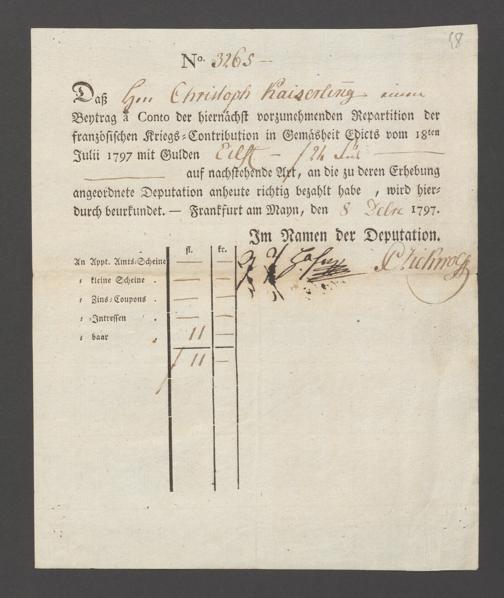 58
No. 3265 —
Daß Hrn Christoph Kaiserling einen
Beytrag à Conto der hiernächst vorzunehmenden Repartition der
französischen Kriegs-Contribution in Gemäsheit Edicts vom 18ten
Julii 1797 mit Gulden Eilff
auf nachstehende Art, an die zu deren Erhebung
angeordnete Deputation anheute richtig bezahlt habe , wird hier-
durch beurkundet. — Frankfurt am Mayn, den 8 Debr 1797.
Im Namen der Deputation.
fl. kr.
An Appt. Amts-Scheine . — —
„ kleine Scheine . — —
„ Zins-Coupons . — —
„ Intressen „ — —
„ baar „ 11 —
11 —